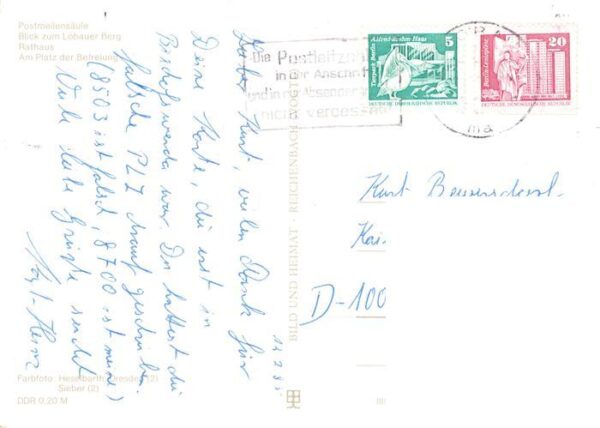 Postmeilensäule
Blick zum Löbauer Berg
Rathaus
Am Platz der Befreiung
Lieber Kurt, vielen Dank für
Deine Karte, die erst in
Bischofswerda war. Du hattest die
falsche PLZ drauf geschrieben.
(8503 ist falsch, 8700 ist meine)
Viele liebe Grüße sendet
-Heinz
Farbfoto: Heselbarth, Dresden (2)
Sieber (2)
DDR 0,20 M
BILD UND HEIMAT REICHENBACH
Die Postleitzahl
in der Anschrift
und im Absender
nicht vergessen
Tierpark Berlin
Alfred-Brehm-Haus
5
DEUTSCHE DEMOKRATISCHE REPUBLIK
Berlin, Leninplatz
20
DEUTSCHE DEMOKRATISCHE REPUBLIK
Kurt
Kai-
D-100